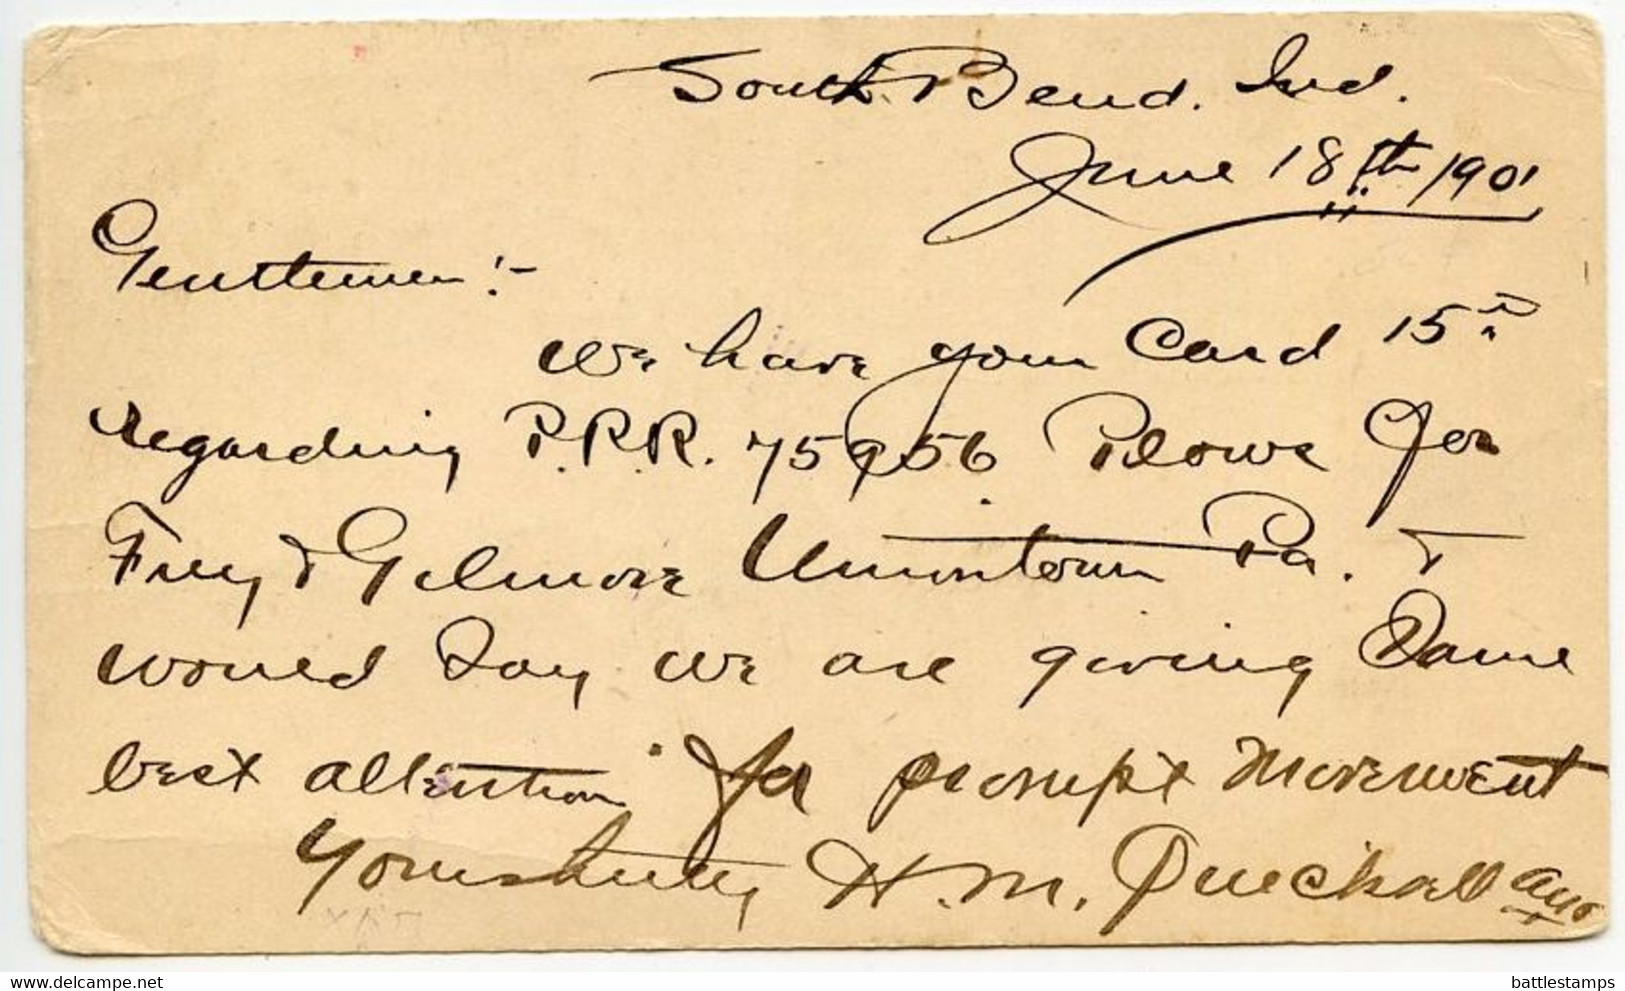 South Bend. Ind.
June 18th 1901
Gentlemen!-
We have your Card 15th
regarding P.R.R. 75956 Plows for
Frey & Gilmore Uniontown Pa.
would Say we are giving Same
best attention for prompt movement
Yours truly H. M. Agt
delcampe.net
battlestamps